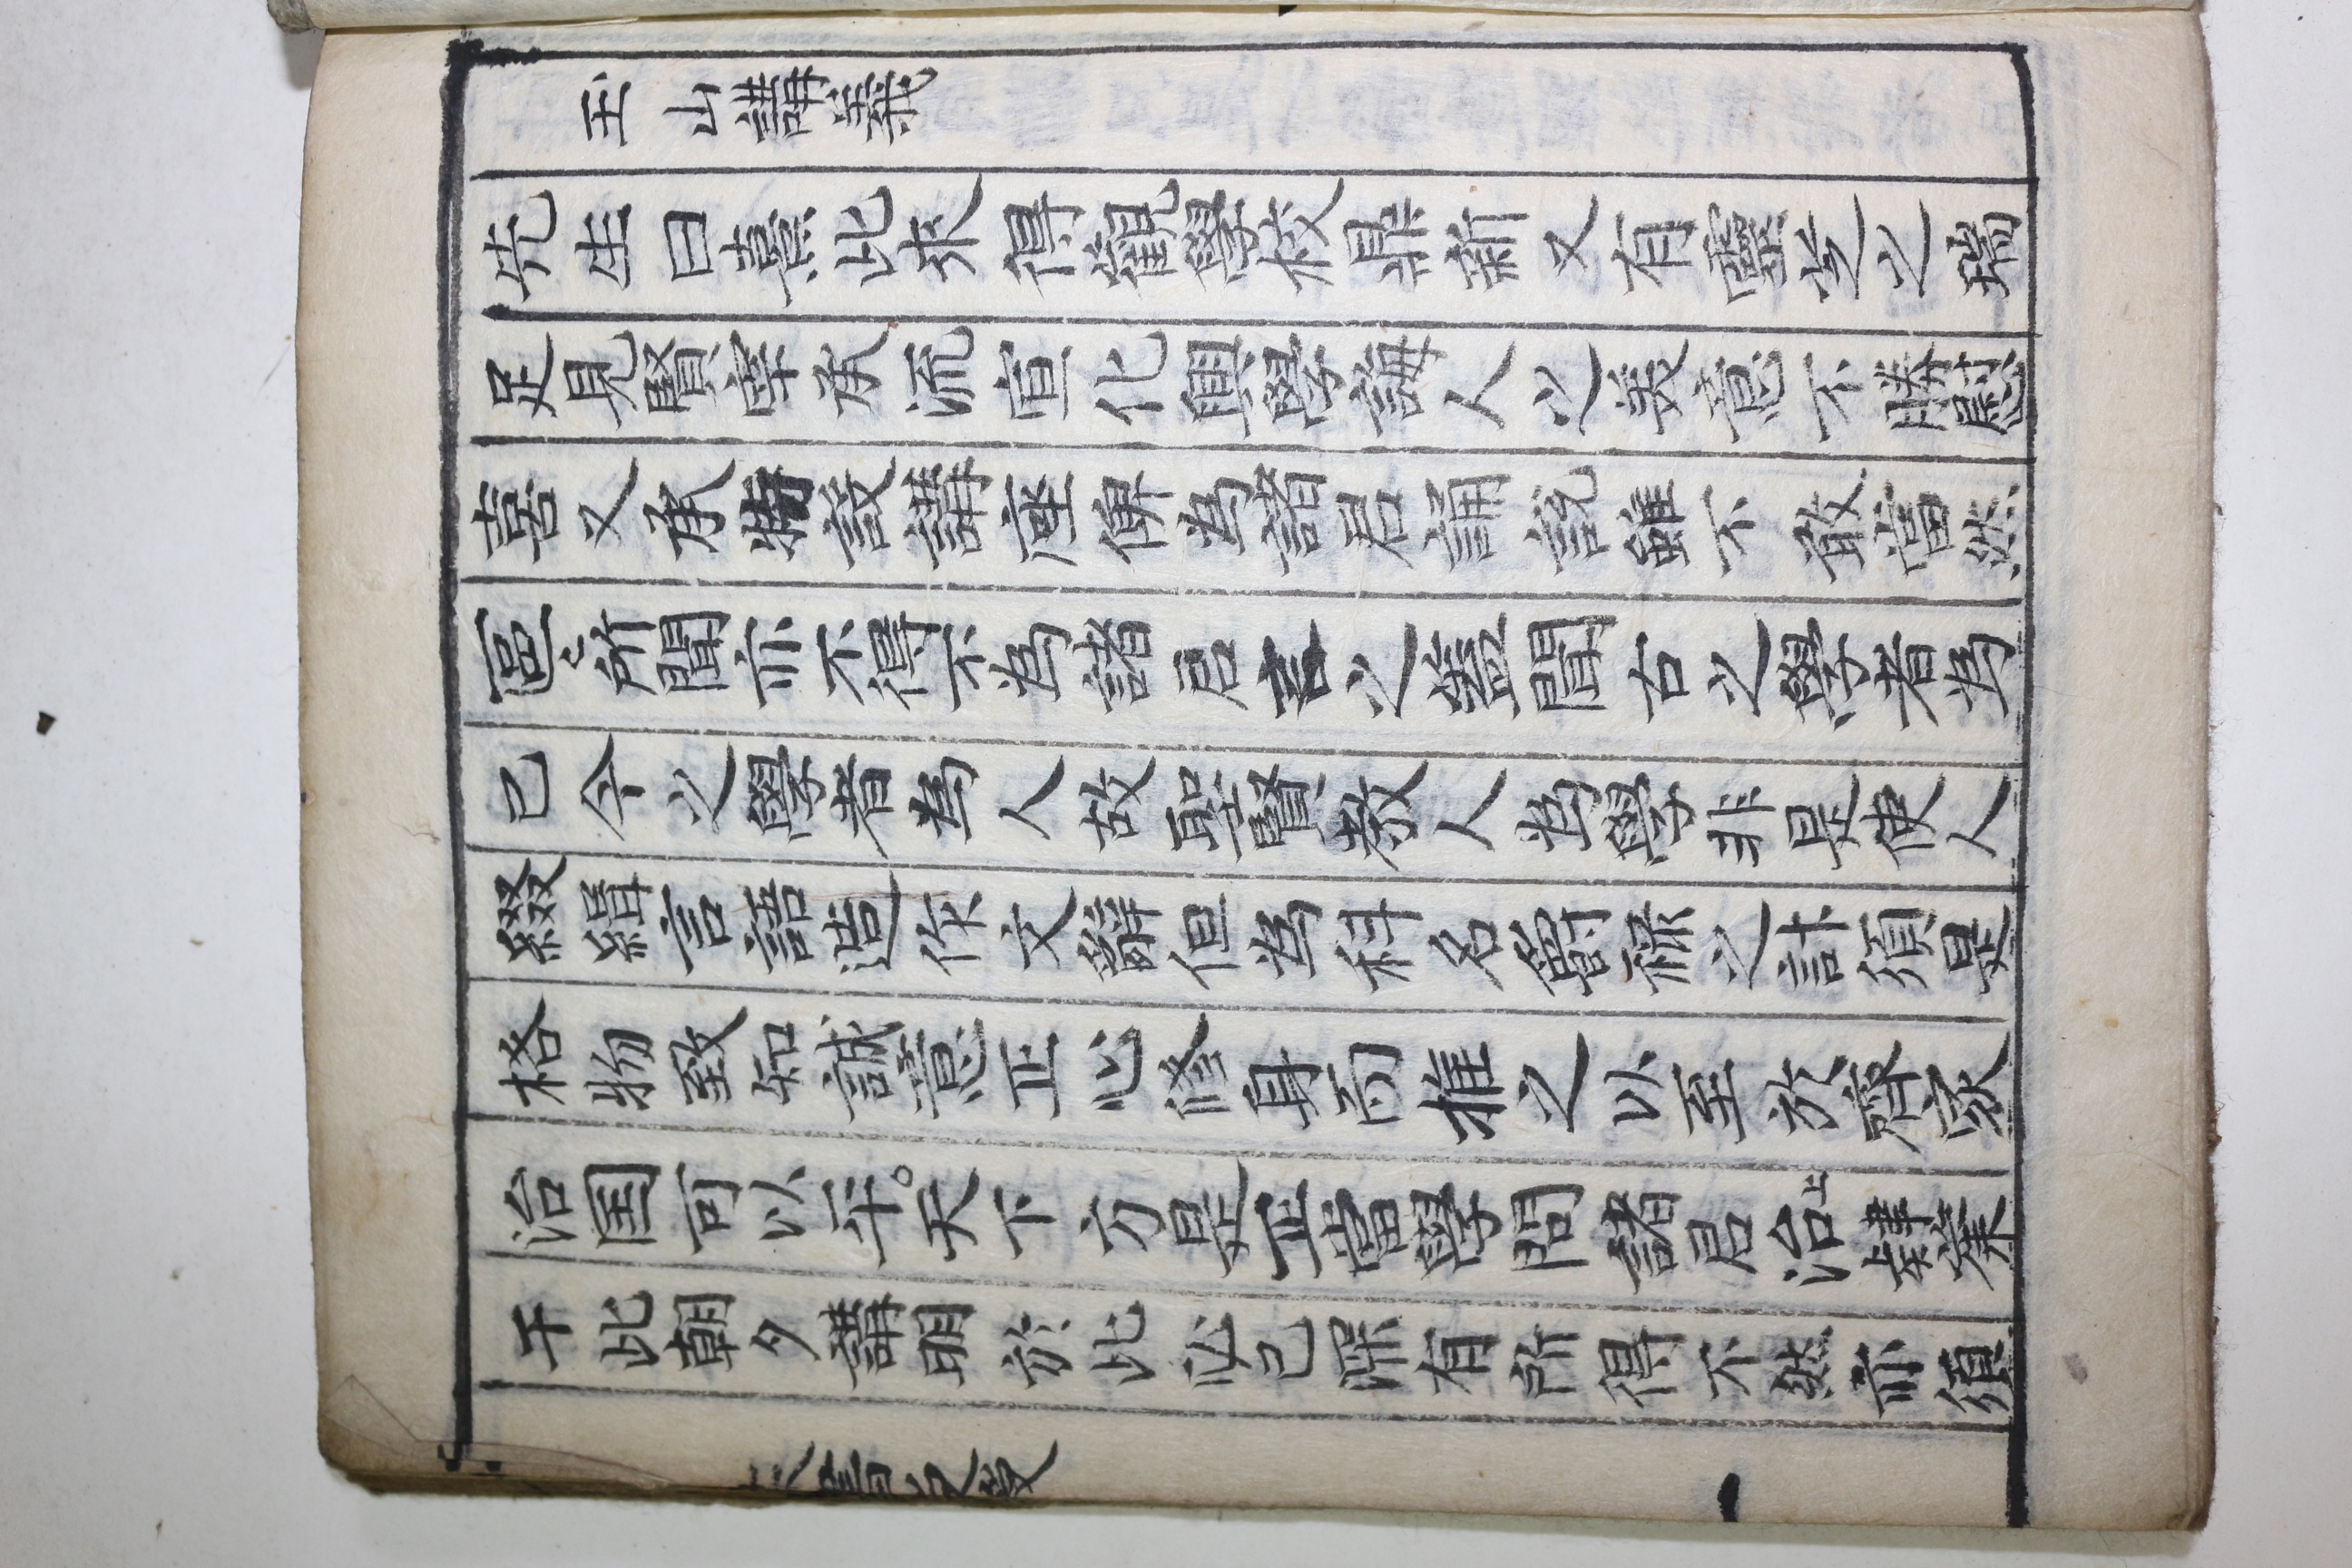 玉山講義
先生曰熹此来得觀學校鼎新又有靈芝之瑞
足見賢宰承流宣化興學誨人之羙意不勝慰
喜又承特設講座俾爲諸君誦說雖不敢當然
區〻所聞亦不得不爲諸君言之盖聞古之學者爲
己今之學者爲人故聖賢教人爲學非是使人
綴緝言語造作文辭但爲科名爵祿之計須是
格物致知誠意正心修身而推之以至於齊家
治国可以平天下方是正當學問諸君治上肄業
于此朝夕講明於此必已深有所得不然亦須